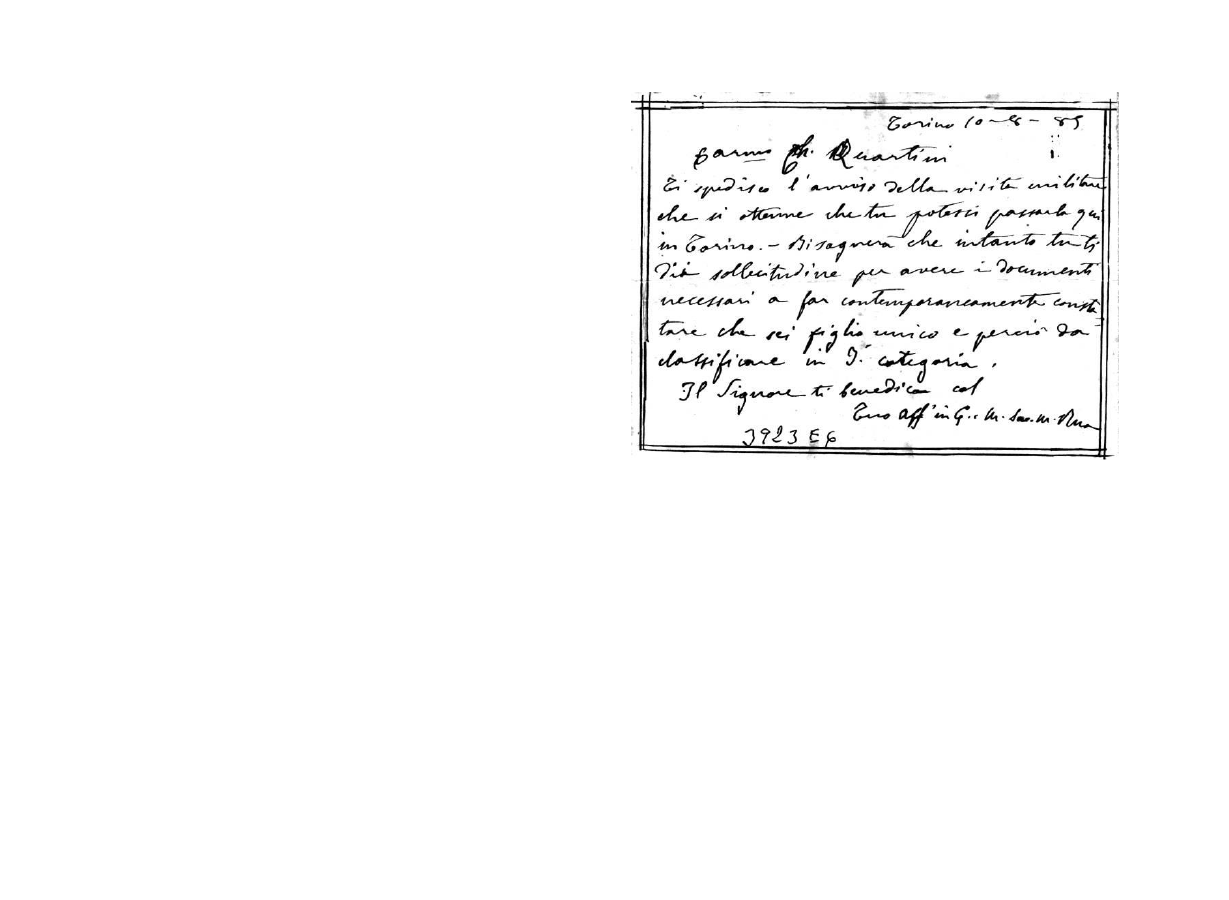 Torino 10-8-85
Carmo Ch. Quartini
Ti spedisco l'avviso della visita militare
che si ottenne che tu potessi passarla qui
in Torino. - Bisognerà che intanto tu ti
dia sollecitudine per avere i documenti
necessari a far contemporaneamente consta=
tare che sei figlio unico e perciò da
classificare in 3ª categoria.
Il Signore ti benedica col
Tuo aff in G. e M. Sac. M. Rua
3923 E6